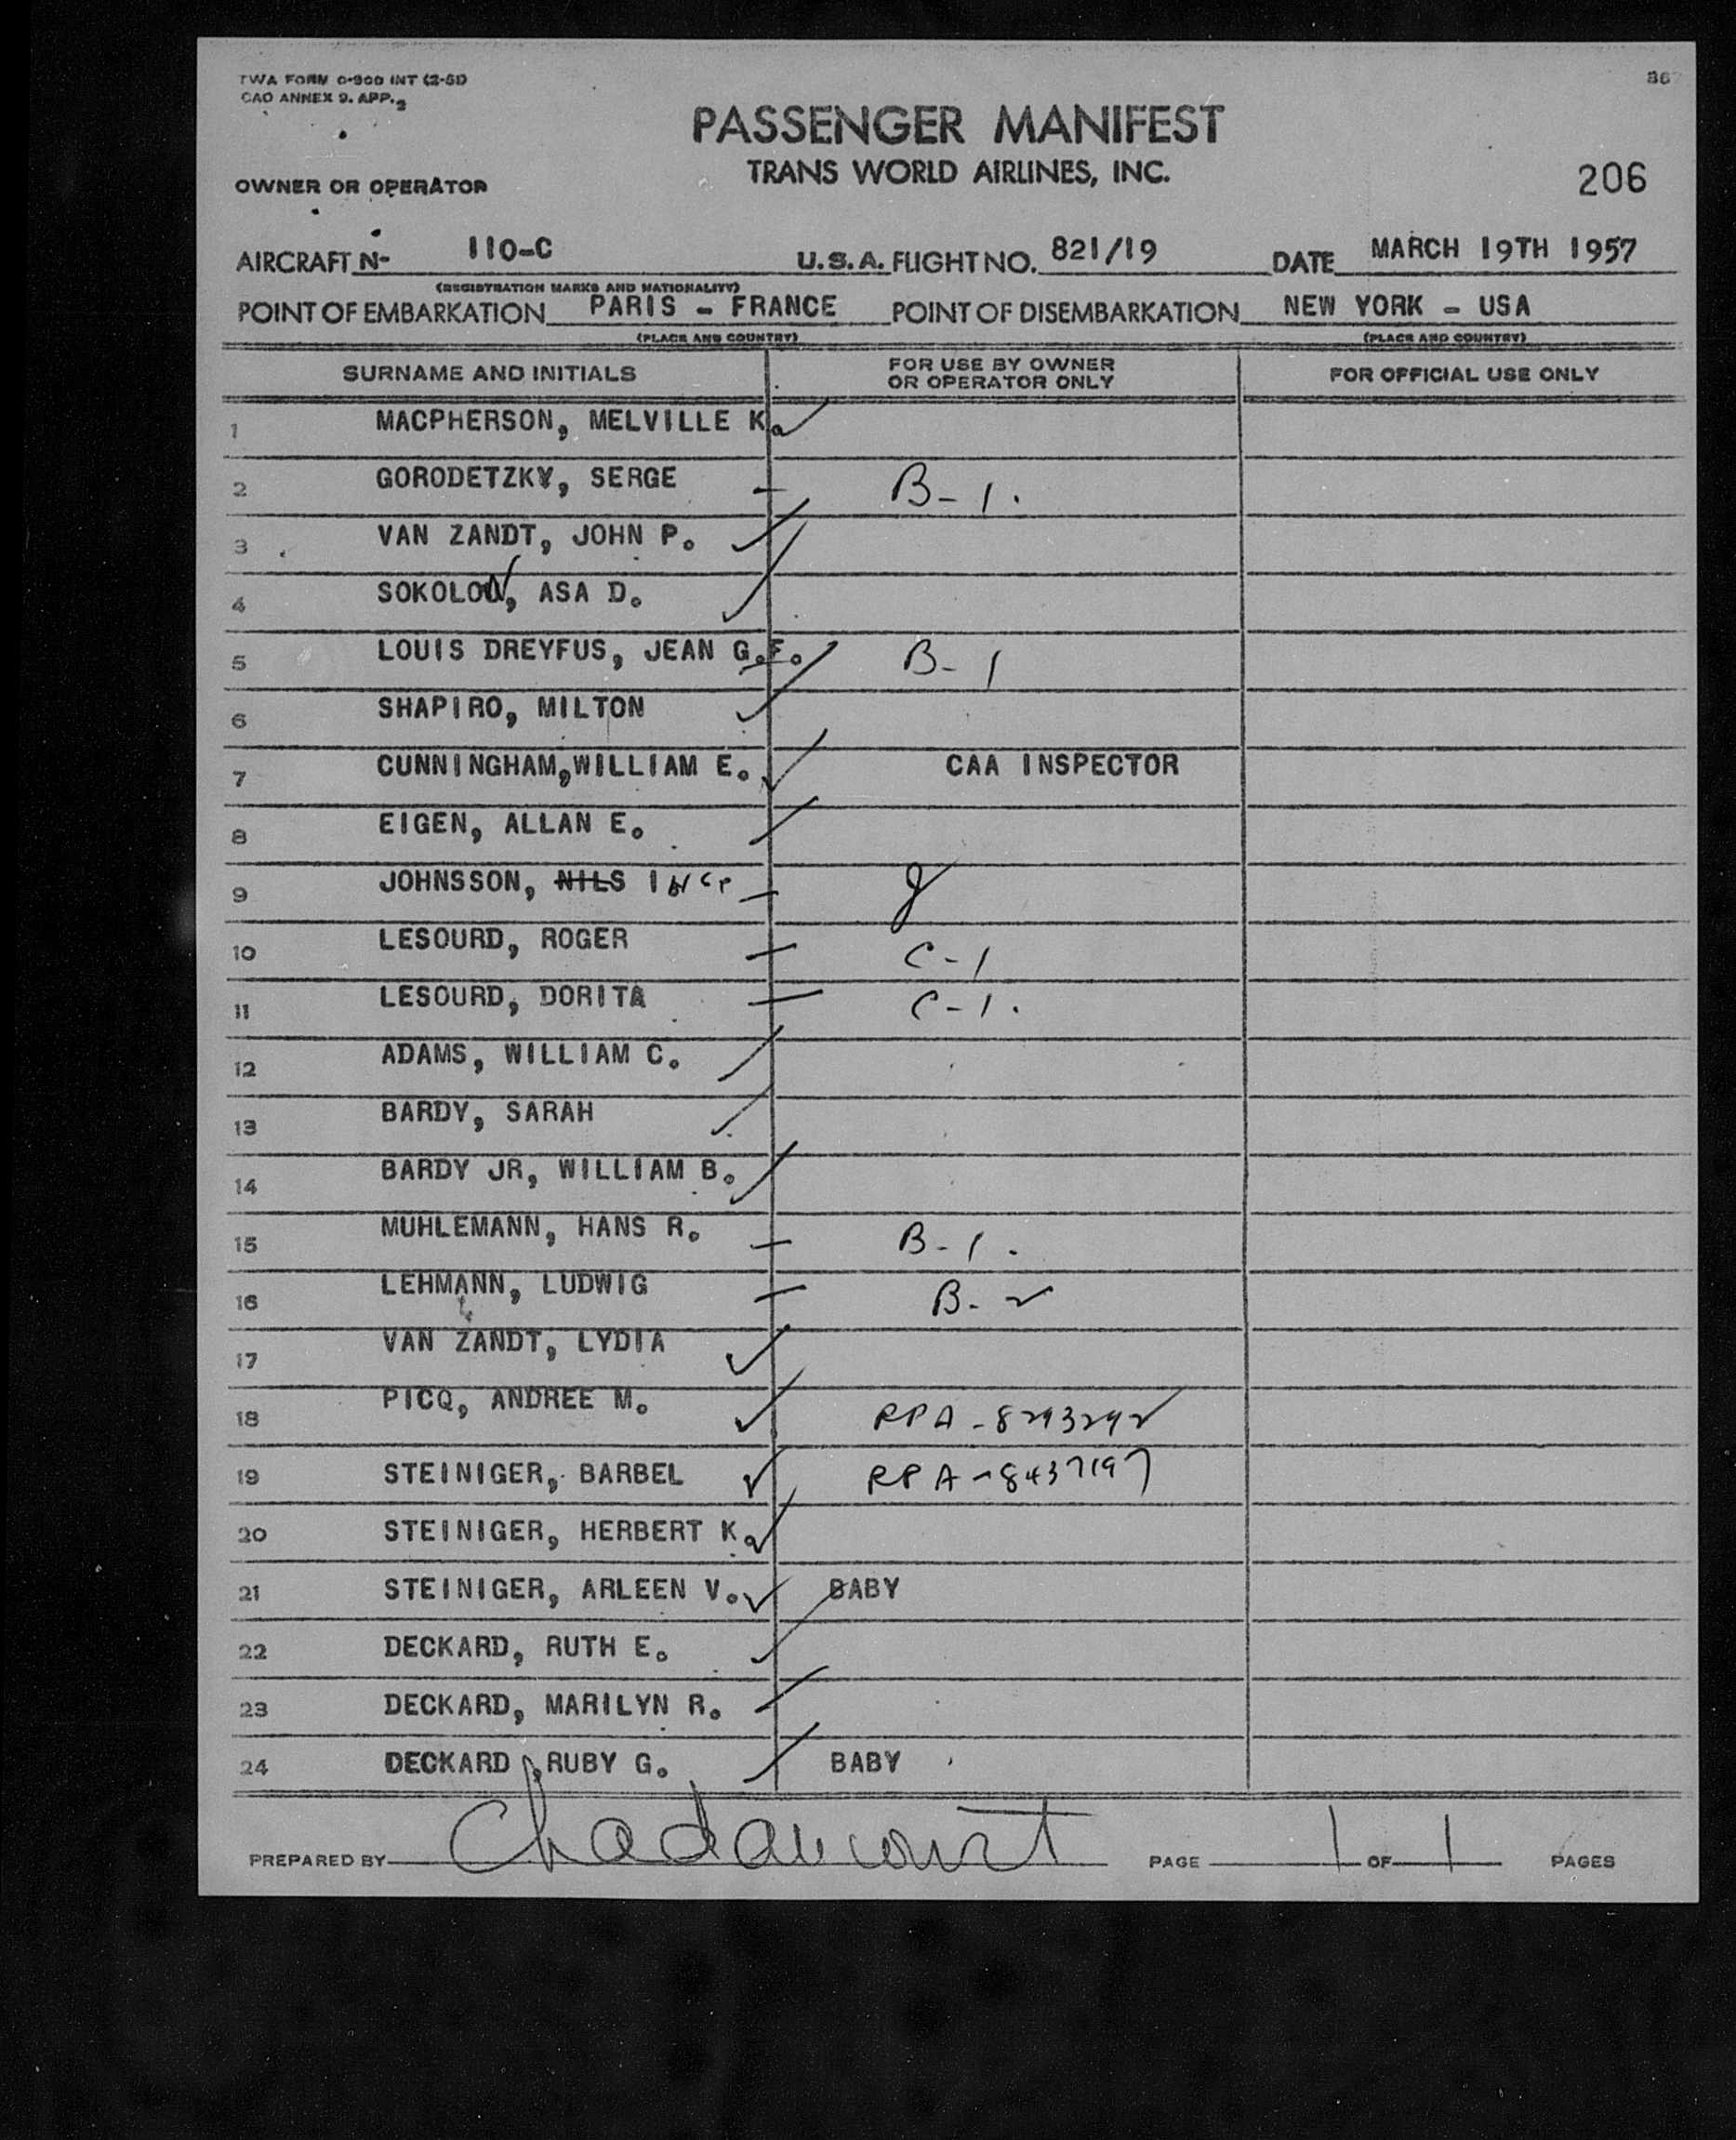 TWA FORM O-900 INT (2-51)
CAO ANNEX 9. APP. 2
PASSENGER MANIFEST
TRANS WORLD AIRLINES, INC.
206
OWNER OR OPERATOR
AIRCRAFT N- 110-C U.S.A. FLIGHT NO. 821/19 DATE MARCH 19TH 1957
(REGISTRATION MARKS AND NATIONALITY)
POINT OF EMBARKATION PARIS - FRANCE POINT OF DISEMBARKATION NEW YORK - USA
(PLACE AND COUNTRY) (PLACE AND COUNTRY)
SURNAME AND INITIALS FOR USE BY OWNER OR OPERATOR ONLY FOR OFFICIAL USE ONLY
1 MACPHERSON, MELVILLE K.
2 GORODETZKY, SERGE B-1.
3 VAN ZANDT, JOHN P.
4 SOKOLOW, ASA D.
5 LOUIS DREYFUS, JEAN G.F. B-1
6 SHAPIRO, MILTON
7 CUNNINGHAM,WILLIAM E. CAA INSPECTOR
8 EIGEN, ALLAN E.
9 JOHNSSON, NILS
10 LESOURD, ROGER C-1
11 LESOURD, DORITA C-1.
12 ADAMS, WILLIAM C.
13 BARDY, SARAH
14 BARDY JR, WILLIAM B.
15 MUHLEMANN, HANS R. B-1.
16 LEHMANN, LUDWIG B-2
17 VAN ZANDT, LYDIA
18 PICQ, ANDREE M. RPA-8293292
19 STEINIGER, BARBEL RPA-8437197
20 STEINIGER, HERBERT K.
21 STEINIGER, ARLEEN V. BABY
22 DECKARD, RUTH E.
23 DECKARD, MARILYN R.
24 DECKARD ,RUBY G. BABY
PREPARED BY PAGE 1 OF 1 PAGES